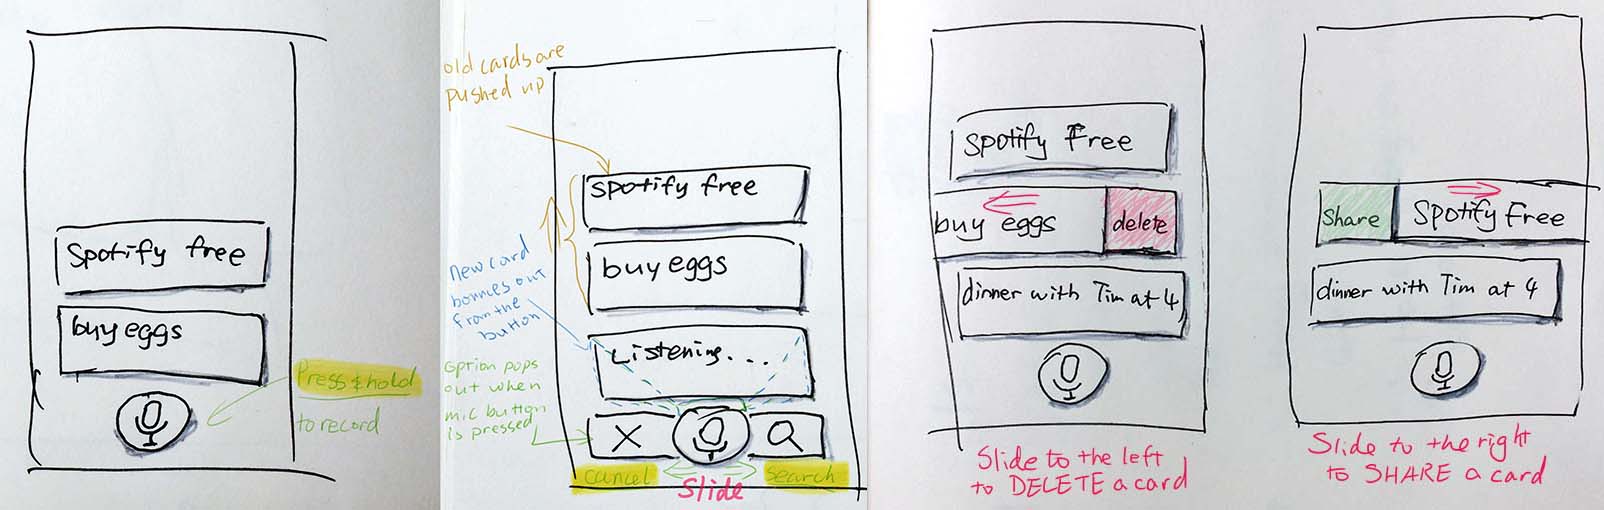 Spotify free
buy eggs
Press & hold
to record
old cards are
pushed up
spotify free
buy eggs
new card
bounces out
from the
button
Listening...
option pops
out when
mic button
is pressed
cancel
search
Slide
Spotify Free
buy eggs
delete
dinner with Tim at 4
Slide to the left
to DELETE a card
Share
Spotify Free
dinner with Tim at 4
Slide to the right
to SHARE a card